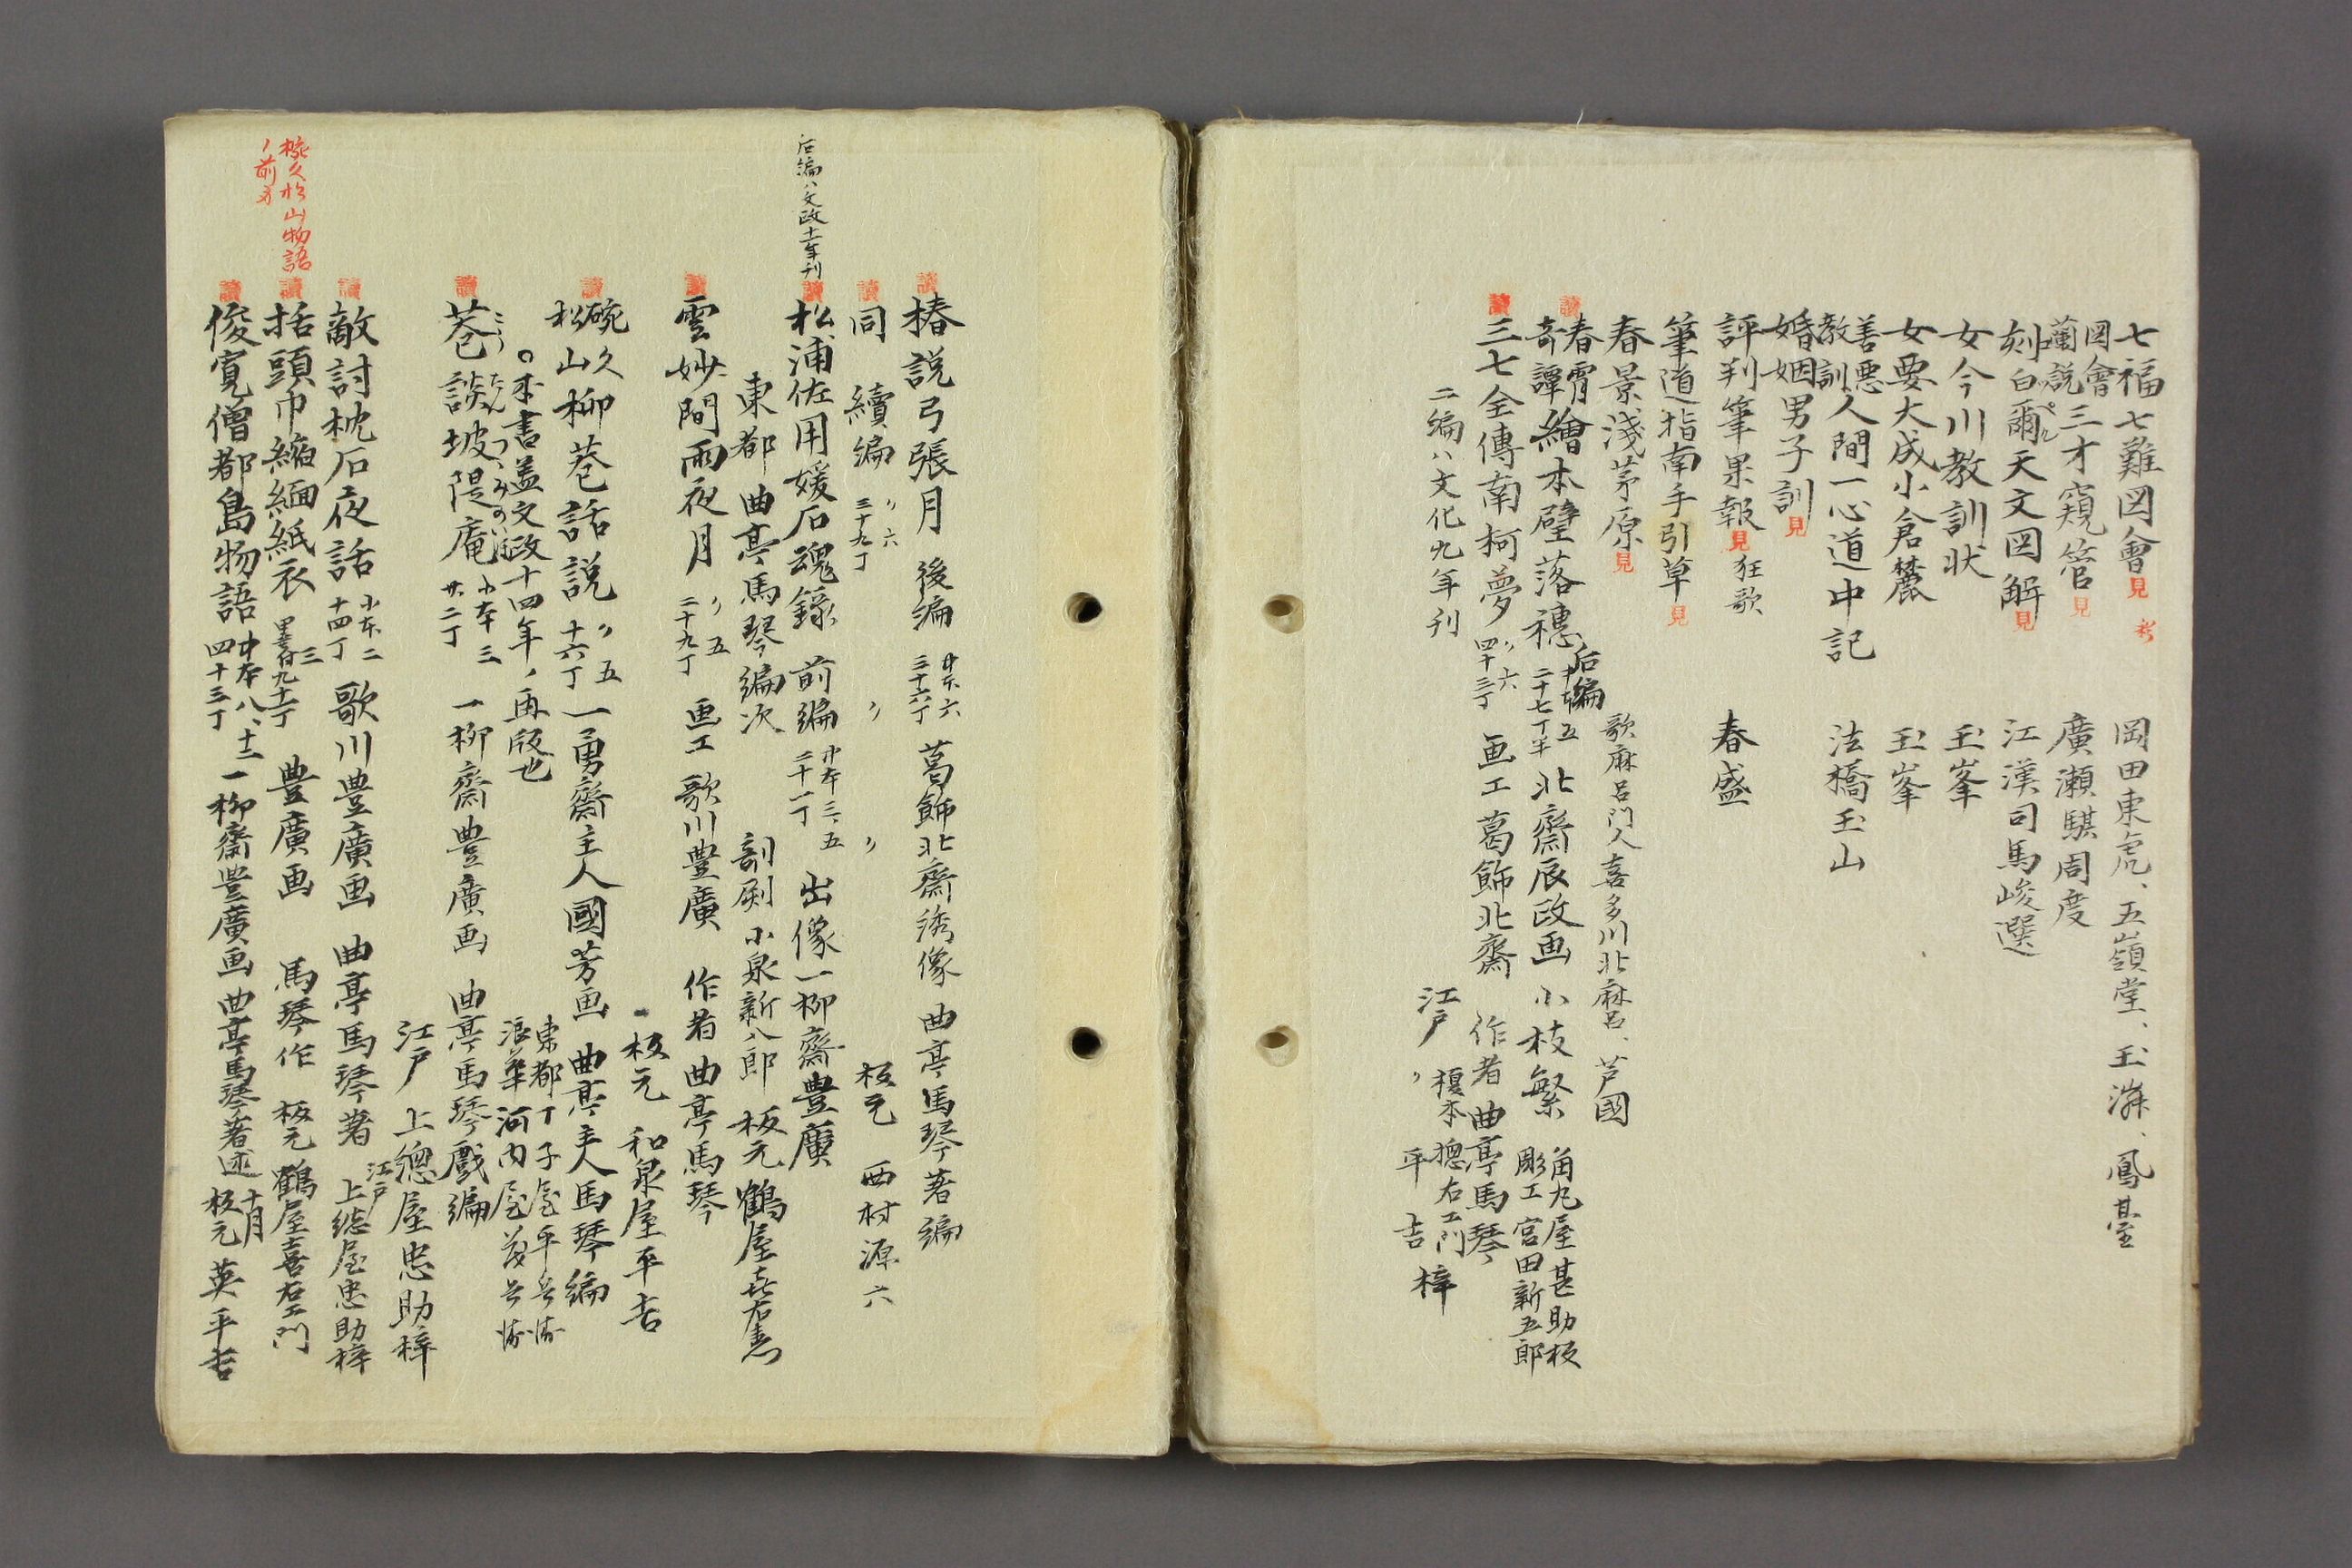 七福七難図會 見 岡田東虎、五嶺堂、玉溿、鳳臺
図會蘭説三才窺管 見 廣瀬騏周度
刻白爾天文図解 見 江漢司馬峻選
女今川教訓状 玉峯
女要大成小倉麓 玉峯
善悪教訓人間一心道中記 法橋玉山
婚姻男子訓 見
評判筆果報 見 狂歌 春盛
筆道指南手引草 見
春景淺茅原 見 歌麻呂門人喜多川北麻呂、芦國
春霄奇譚繪本璧落穂 后編 五 二十七丁半 北齋辰政画 小枝繁 角丸屋甚助板 彫工宮田新五郎
三七全傳南柯夢 〃六 四十三丁 画工葛飾北齋 作者曲亭馬琴
二編ハ文化九年刊 江戸 榎本惣右エ門 〃 平吉 梓
椿説弓張月 後編 六 三十六丁 葛飾北齋綉像 曲亭馬琴著編
同 續編 〃六 三十九丁 〃 〃 板元 西村源六
后編ハ文政十一年刊
松浦佐用媛石魂録 前編 三、五 二十一丁 出像一柳齋豊廣
東都 曲亭馬琴編次 剞劂小泉新八郎 板元鶴屋喜右衛門
雲妙間雨夜月 〃五 二十九丁 画工歌川豊廣 作者曲亭馬琴
板元 和泉屋平吉
碗久松山柳巷話説 〃五 十六丁 一勇齋主人國芳画 曲亭主人馬琴編
○本書盖文政十四年、再版也 東都丁子屋平兵衛 浪華河内屋茂兵衛
巷談坡隄庵 小本三 廿二丁 一柳齋豊廣画 曲亭馬琴戯編
江戸 上總屋忠助梓
敵討枕石夜話 小本二 十四丁 歌川豊廣画 曲亭馬琴著 江戸 上總屋忠助梓
椀久松山物語ノ前方
括頭巾縮緬紙衣 三 豊廣画 馬琴作 板元鶴屋喜右エ門
俊寛僧都島物語 中本八、十二 四十三丁 一柳齋豊廣画 曲亭馬琴著述 十月 板元 英平吉